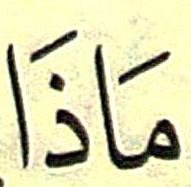 مَاذَا